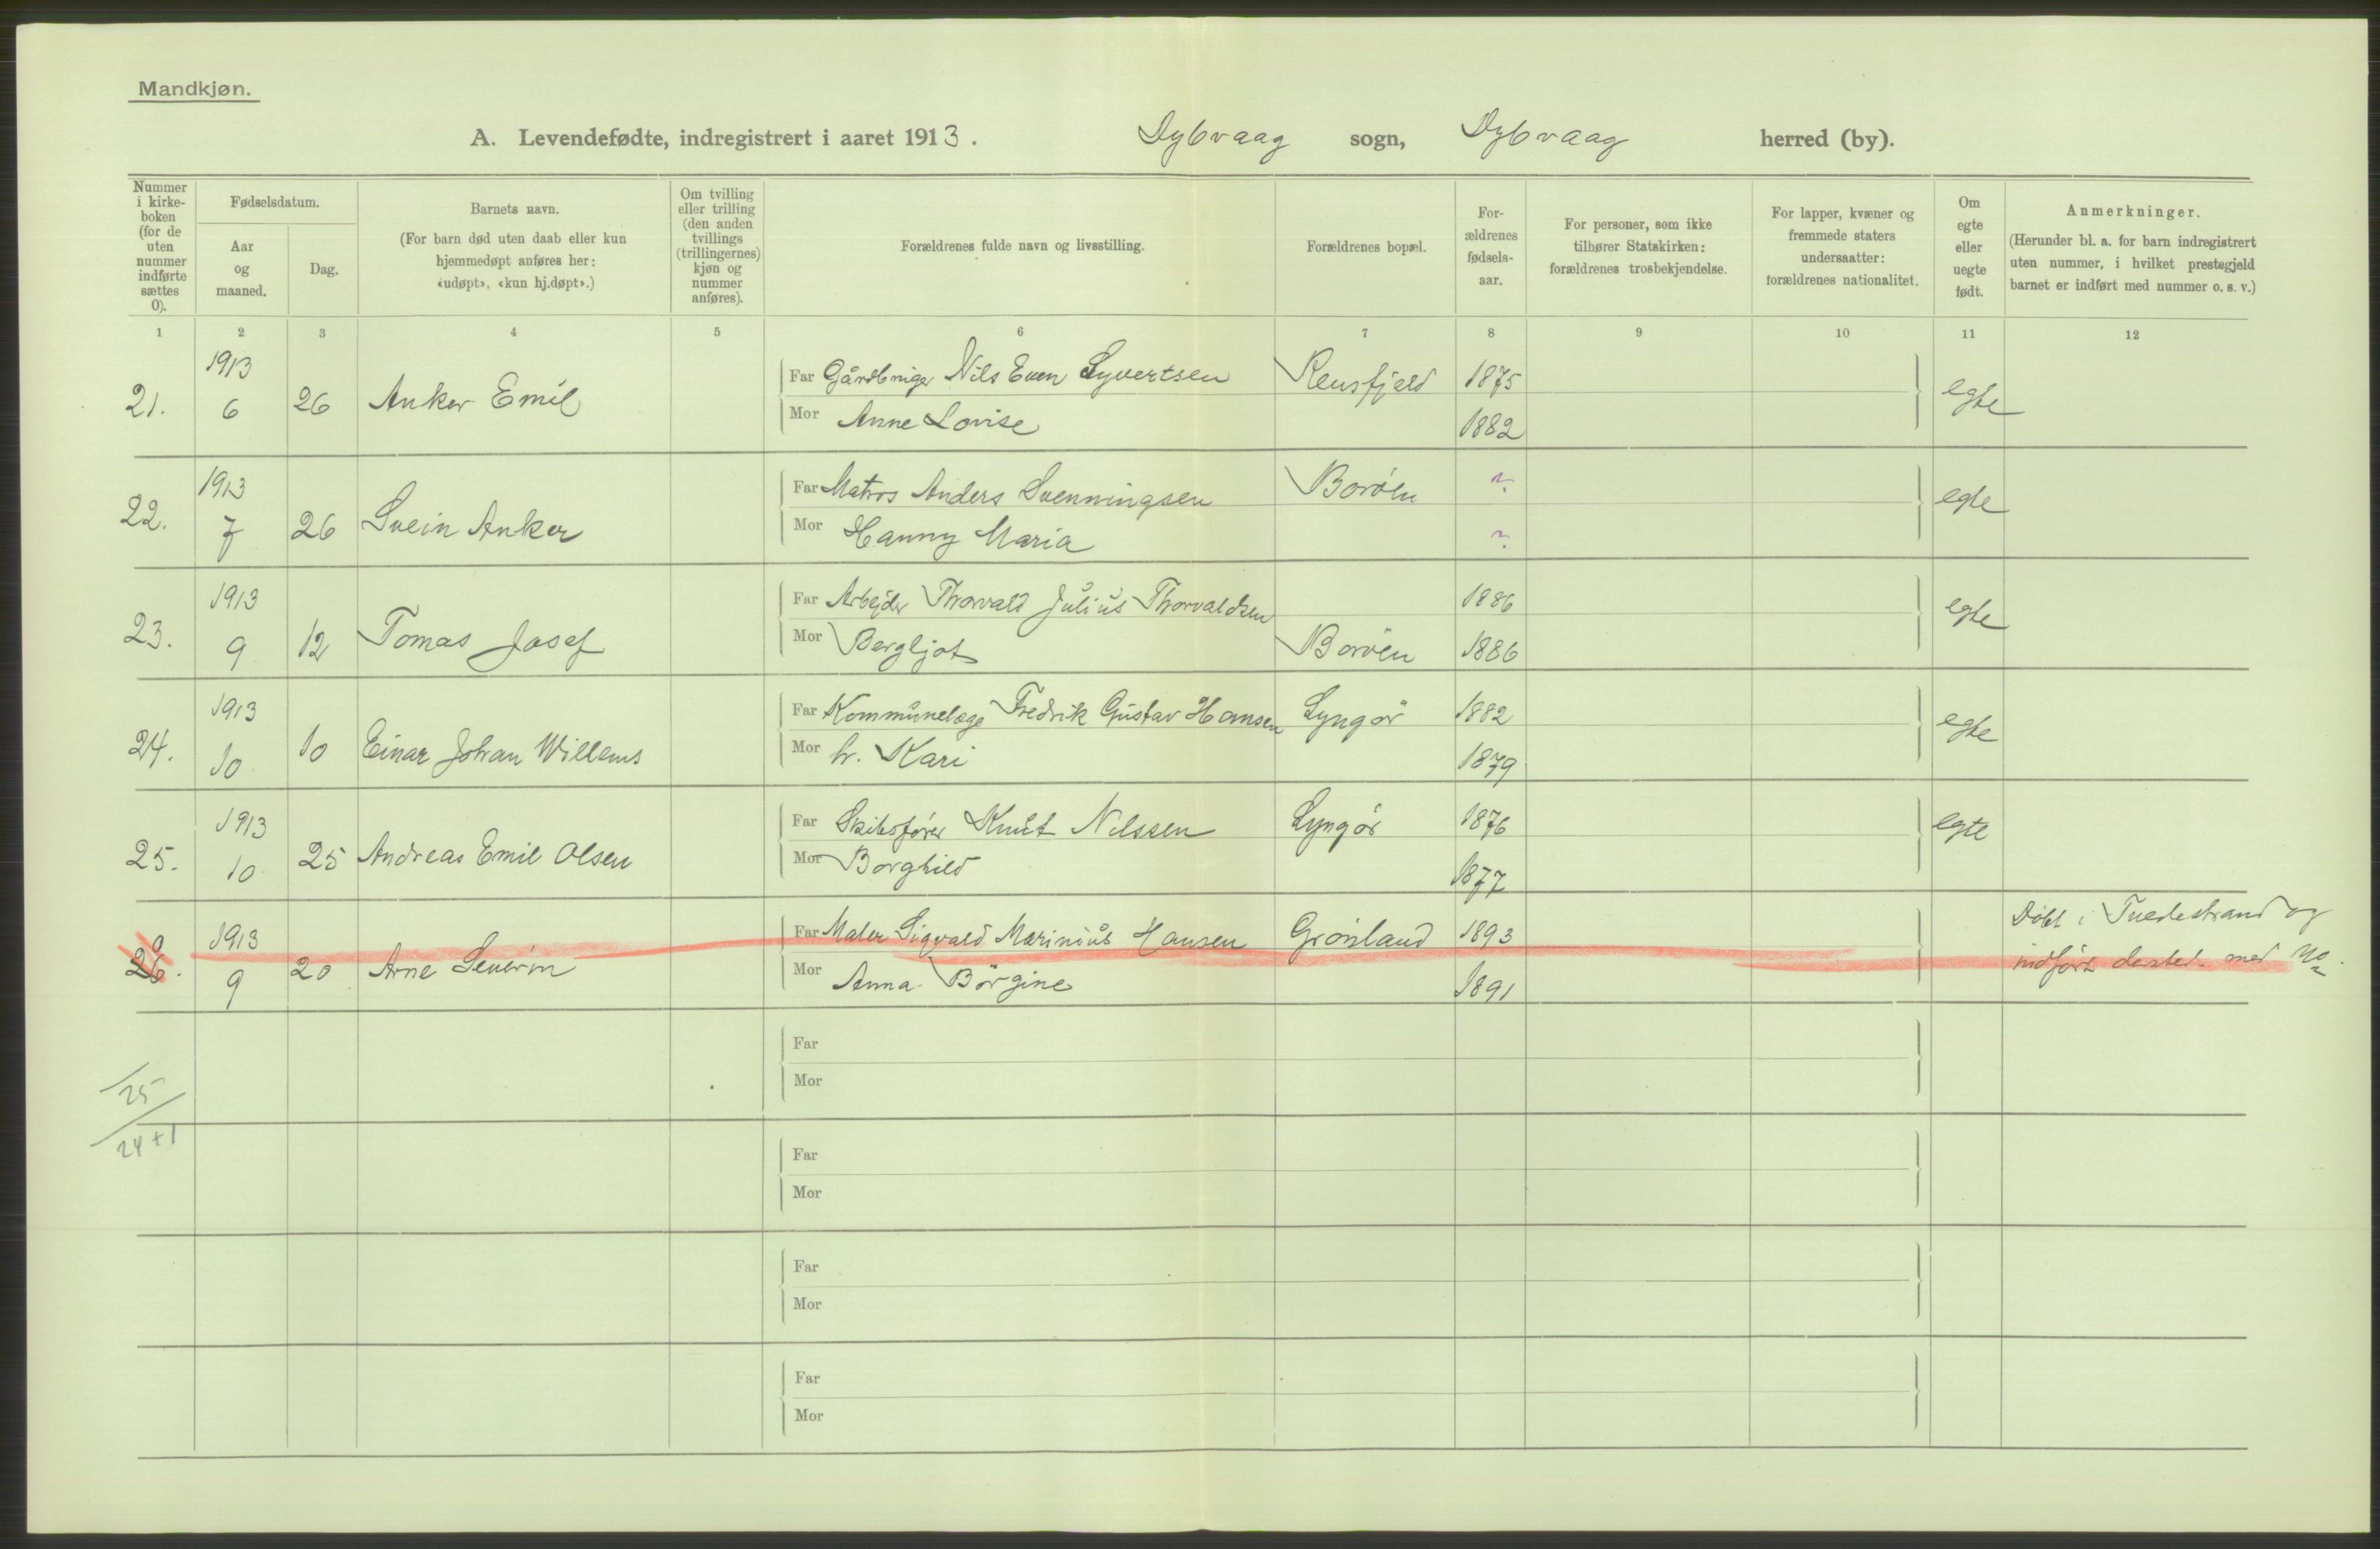 Mandkjøn.
A. Levendefødte, indregistrert i aaret 1913. Dybvaag sogn, Dybvaag herred (by).
Nummer i kirke-boken (for de uten nummer indførte sættes 0).
Fødselsdatum.
Aar og maaned.
Dag.
Barnets navn.
(For barn død uten daab eller kun hjemmedøpt anføres her: «udøpt», «kun hj.døpt».)
Om tvilling eller trilling (den anden tvillings (trillingernes) kjøn og nummer anføres).
Forældrenes fulde navn og livsstilling.
Forældrenes bopæl.
For-ældrenes fødsels-aar.
For personer, som ikke tilhører Statskirken: forældrenes trosbekjendelse.
For lapper, kvæner og fremmede staters undersaatter: forældrenes nationalitet.
Om egte eller uegte født.
Anmerkninger.
(Herunder bl. a. for barn indregistrert uten nummer, i hvilket prestegjeld barnet er indført med nummer o. s. v.)
1 2 3 4 5 6 7 8 9 10 11 12
21. 1913 6 26 Anker Emil Far Gårdbruger Nils Even Syvertsen Rensfjeld 1875 egte
Mor Anne Lovise 1882
22. 1913 7 26 Svein Anker Far Matros Anders Svenningsen Borøen ? egte
Mor Hanny Maria ?
23. 1913 9 12 Tomas Josef Far Arbejder Thorvald Julius Thorvaldsen 1886 egte
Mor Bergljot Borøen 1886
24. 1913 10 10 Einar Johan Willems Far Kommunelæge Fredrik Gustav Hansen Lyngør 1882 egte
Mor h. Kari 1879
25. 1913 10 25 Andreas Emil Olsen Far Skibsfører Knut Nilssen Lyngør 1876 egte
Mor Borghild 1877
26. 0 1913 9 20 Arne Severin Far Maler Sigvald Marinius Hansen Grønland 1893 Døbt i Tvedestrand og
Mor Anna Börgine 1891 indført dersteds med No.
Far
Mor
25
24+1
Far
Mor
Far
Mor
Far
Mor